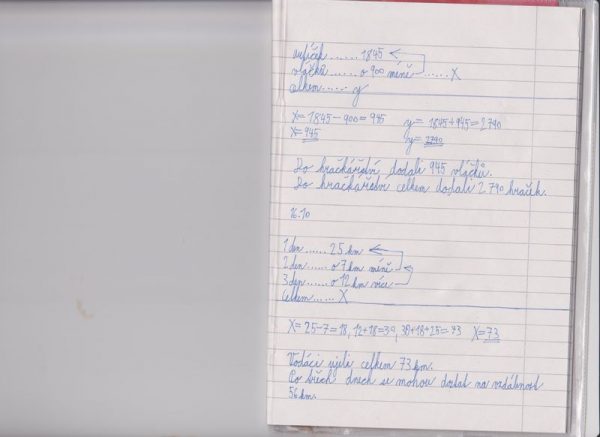 autíček ...... 1845
vláčků ...... o 900 méně ...... X
celkem ...... y
X = 1845 - 900 = 945 y = 1845 + 945 = 2790
X = 945 y = 2790
Do hračkářství dodali 945 vláčků.
Do hračkářství celkem dodali 2 790 hraček.
16.10
1 den ...... 25 km
2 den ...... o 7 km méně
3 den ...... o 12 km více
celkem ...... X
X = 25 - 7 = 18, 12 + 18 = 30, 30 + 18 + 25 = 73 X = 73
Vodáci ujeli celkem 73 km.
Po třech dnech se mohou dostat na vzdálenost
56 km.